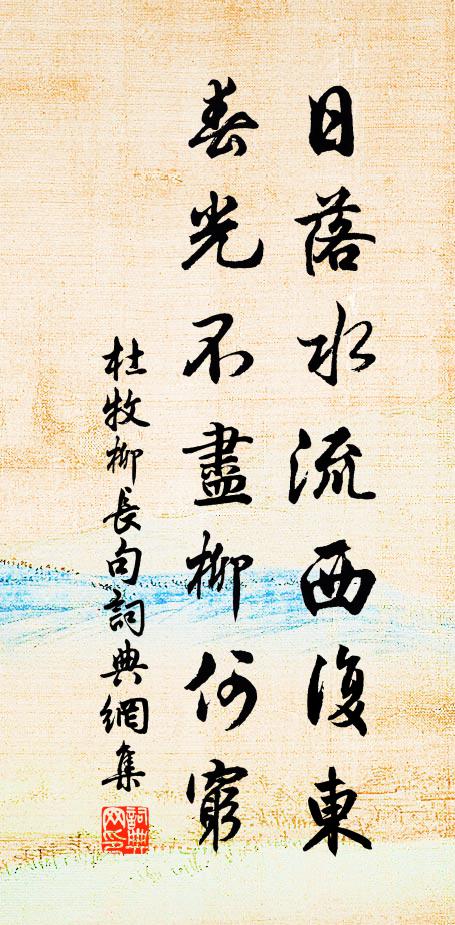 日落水流西復東
春光不盡柳何窮
杜牧柳長句詞典網集
詞典
網印